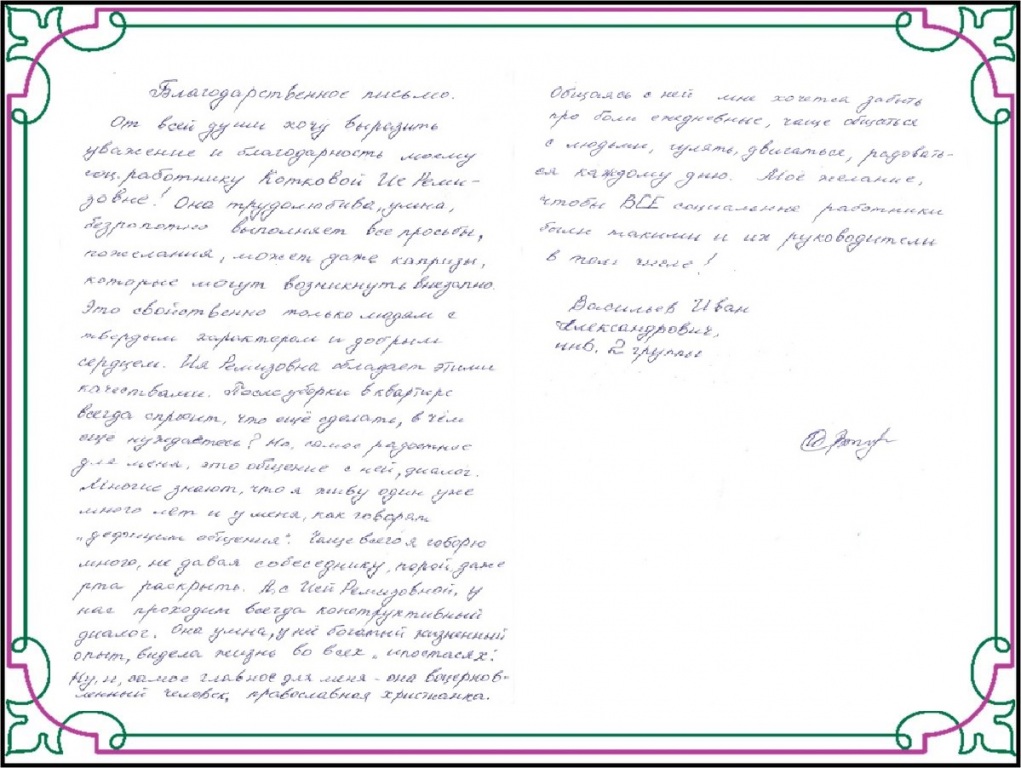 Благодарственное письмо.
От всей души хочу выразить
уважение и благодарность моему
соц. работнику Котковой Ие Реми-
зовне! Она трудолюбива, умна,
безропотно выполняет все просьбы,
пожелания, может даже капризы,
которые могут возникнуть внезапно.
Это свойственно только людям с
твердым характером и добрым
сердцем. Ия Ремизовна обладает этими
качествами. После уборки в квартире
всегда спросит, что ещё сделать, в чём
ещё нуждаетесь? Но, самое радостное
для меня, это общение с ней, диалог.
Многие знают, что я живу один уже
много лет и у меня, как говорят
„дефицит общения". Чаще всего я говорю
много, не давая собеседнику, порой, даже
рта раскрыть. А, с Ией Ремизовной, у
нас проходит всегда конструктивный
диалог. Она умна, у неё богатый жизненный
опыт, видела жизнь во всех „ипостасях".
Ну, и, самое главное для меня - она воцерков-
ленный человек, православная христианка.
Общаясь с ней мне хочется забыть
про боли ежедневные, чаще общаться
с людьми, гулять, двигаться, радовать-
ся каждому дню. Моё желание,
чтобы ВСЕ социальные работники
были такими и их руководители
в том числе!
Васильев Иван
Александрович,
инв. 2 группы